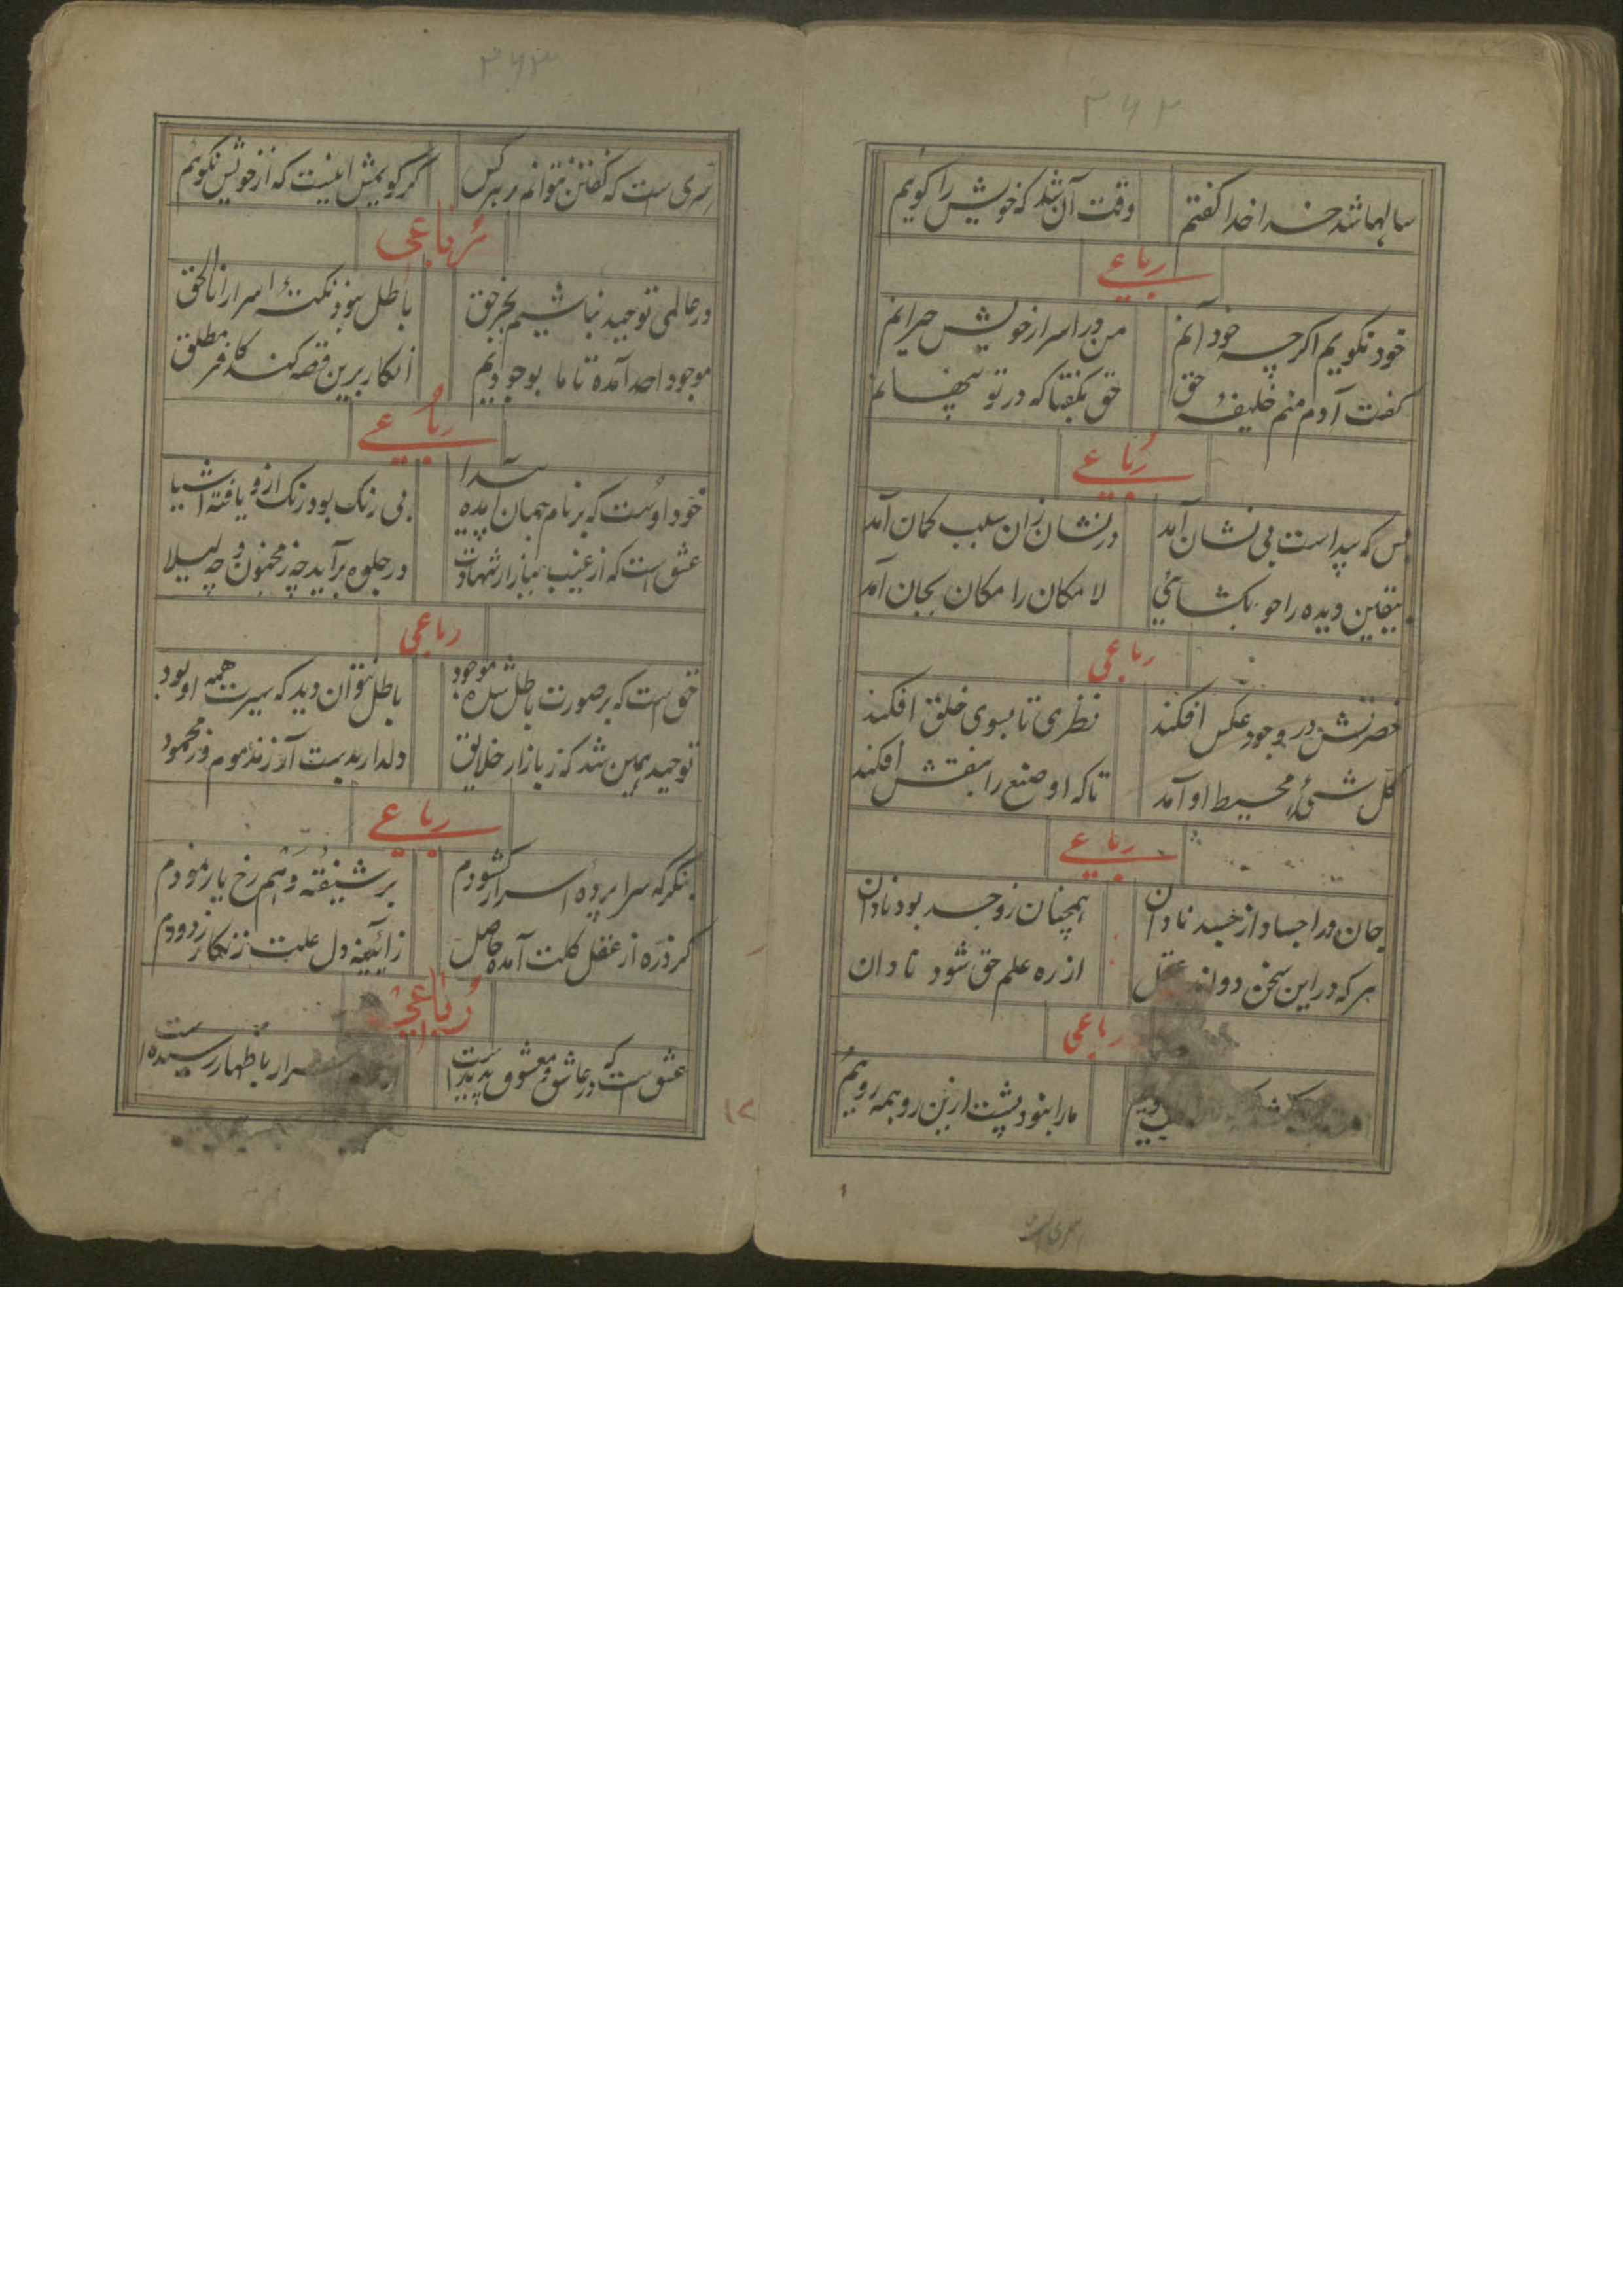 ۲۶۲
سالها شد خدا خدا گفتم وقت آن شد که خویش را گویم
رباعی
خود نگویم اگرچه خود آنم من در اسرار خویش حیرانم
گفت آدم منم خلیفهٔ حق حق بگفتا که در تو پنهانم
رباعی
بس که پیداست بی نشان آمد در نشان زان سبب گمان آمد
بیقین دیده را چو بکشائی لا مکان را مکان بجان آمد
رباعی
حضرتش در وجود عکس افکند نظری تا بسوی خلق افکند
کل شیٔ محیط او آمد تا که او صنع را بنقش افکند
رباعی
جان در اجساد از جسد نادان همچنان زو جسد بود نادان
هر که در این سخن دواند عقل از ره علم حق شود نادان
رباعی
ما را بنود پشت ازین رو همه رویم
سری است
۲۶۳
سری است که گفتن نتوانم بر هر کس گر گویمش اینیست که از خویش نگویم
رباعی
در عالمی توحید نباشیم بجز حق باطل بنود نکتهٔ اسرار انا الحق
موجود احد آمده تا ما بوجودیم انکار برین قصه کند کافر مطلق
رباعی
خود اوست که بر نام جهان آمده پیدا بی رنگ بود رنگ ازو یافته اشیا
عشق است که از غیب ببازار شهادت در جلوه برآید چه ز مجنون و چه لیلا
رباعی
حق است که بر صورت باطل شده موجود باطل نتوان دید که سیرت همه او بود
توحید همین شد که ز بازار خلایق دلدار بدست آر ز مذموم و ز محمود
رباعی
بنگر که سراپردهٔ اسرار گشودم بر شیفته وهم رخ یار نمودم
گر ذره از عقل کلت آمده حاصل ز آئینهٔ دل علت زنگار زدودم
رباعی
عشق است که در عاشق و معشوق پدید است اسرار باظهار رسیده است
۱۲